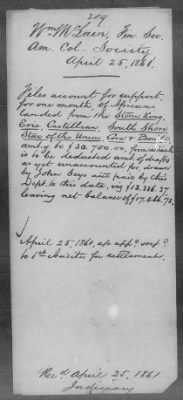 209
Wm McLain, Fin. Sec.
Am. Col. Society
April 25, 1861.
Files account for support,
for one month, of Africans
landed from the Storm King,
Erie Castillian, South Shore
Star of the Union, Cora & Bon
amt'g to $30,700.00, from which
is to be deducted amt of drafts
as yet unaccounted for, drawn
by John Seys and paid by this
Dept. to this date, viz $13,233.27.
leaving net balance of $17,466.73.
April 25, 1861,
to 5th Auditor for settlement.
Rec'd April 25, 1861
Judiciary